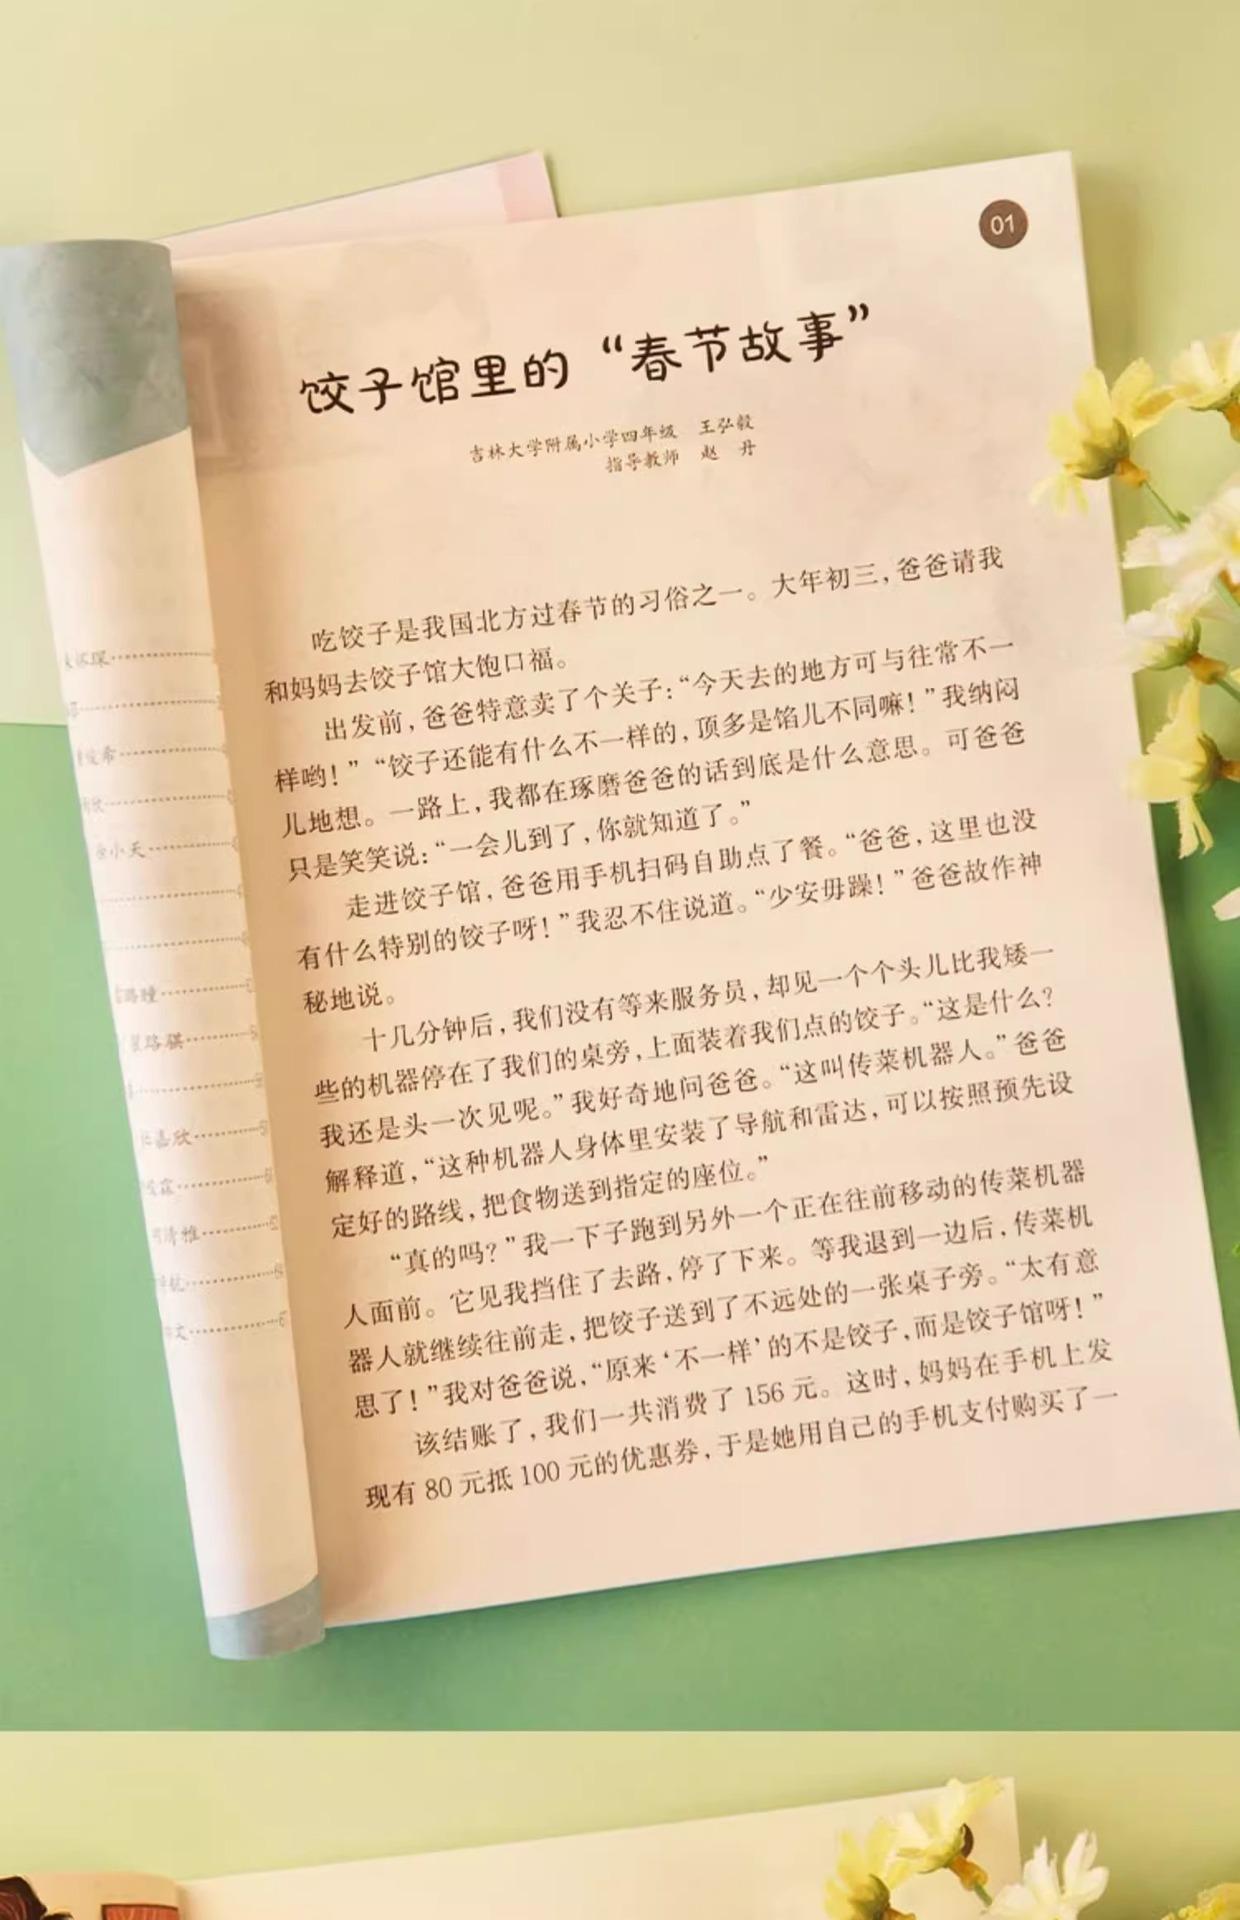 01
饺子馆里的“春节故事”
吉林大学附属小学四年级 王弘毅
指导教师 赵 丹
吃饺子是我国北方过春节的习俗之一。大年初三，爸爸请我
和妈妈去饺子馆大饱口福。
出发前，爸爸特意卖了个关子：“今天去的地方可与往常不一
样哟！”“饺子还能有什么不一样的，顶多是馅儿不同嘛！”我纳闷
儿地想。一路上，我都在琢磨爸爸的话到底是什么意思。可爸爸
只是笑笑说：“一会儿到了，你就知道了。”
走进饺子馆，爸爸用手机扫码自助点了餐。“爸爸，这里也没
有什么特别的饺子呀！”我忍不住说道。“少安毋躁！”爸爸故作神
秘地说。
十几分钟后，我们没有等来服务员，却见一个个头儿比我矮一
些的机器停在了我们的桌旁，上面装着我们点的饺子。“这是什么？
我还是头一次见呢。”我好奇地问爸爸。“这叫传菜机器人。”爸爸
解释道，“这种机器人身体里安装了导航和雷达，可以按照预先设
定好的路线，把食物送到指定的座位。”
“真的吗？”我一下子跑到另外一个正在往前移动的传菜机器
人面前。它见我挡住了去路，停了下来。等我退到一边后，传菜机
器人就继续往前走，把饺子送到了不远处的一张桌子旁。“太有意
思了！”我对爸爸说，“原来‘不一样’的不是饺子，而是饺子馆呀！”
该结账了，我们一共消费了156元。这时，妈妈在手机上发
现有80元抵100元的优惠券，于是她用自己的手机支付购买了一
小天
嘉欣
清雅
文